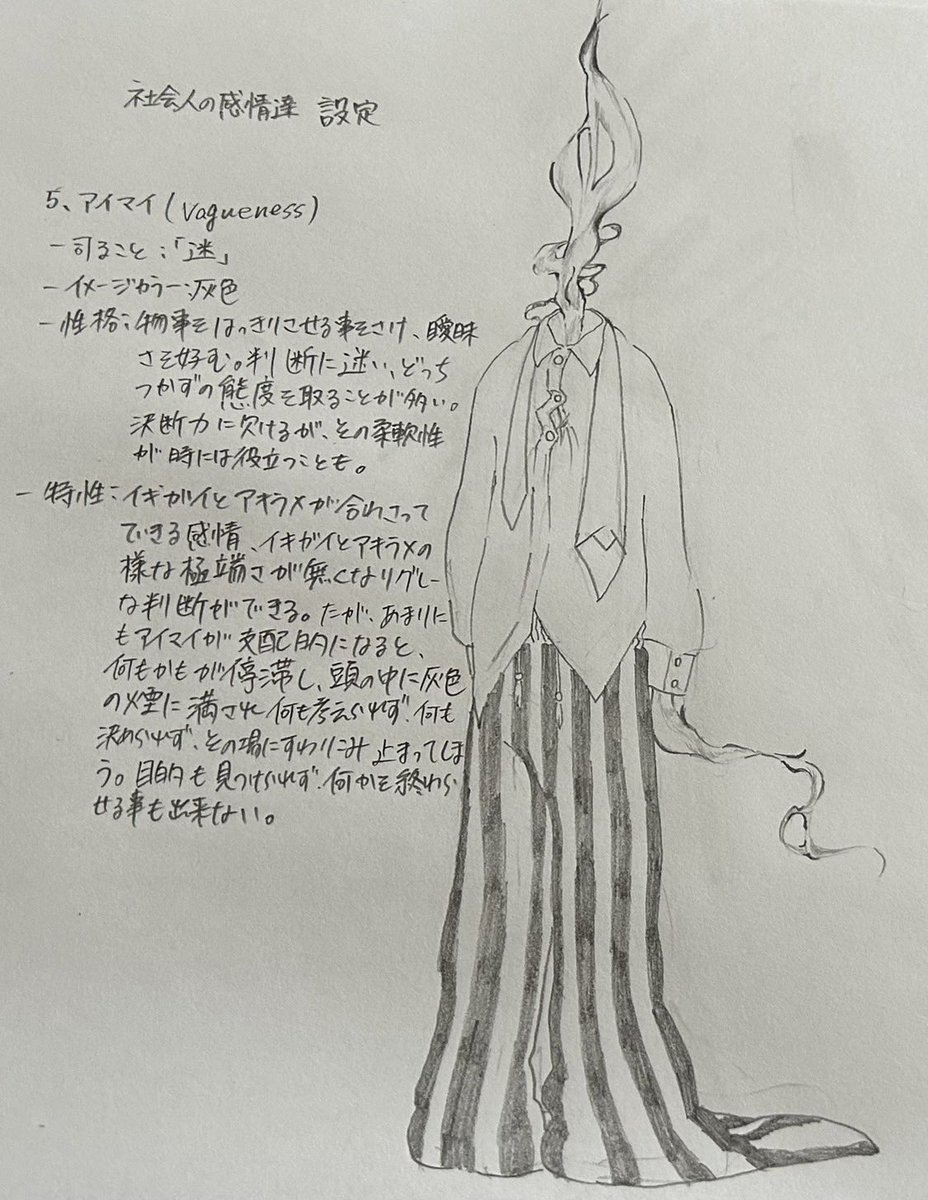 社会人の感情達 設定
5、アイマイ(Vagueness)
-司ること:「迷」
-イメージカラー:灰色
-性格:物事をはっきりさせる事をさけ、曖昧
さを好む。判断に迷い、どっち
つかずの態度を取ることが多い。
決断力に欠けるが、その柔軟性
が時には役立つことも。
-特性:イキガイとアキラメが合わさって
できる感情、イキガイとアキラメの
様な極端さが無くなりグレー
な判断ができる。だが、あまりに
もアイマイが支配的になると、
何もかもが停滞し、頭の中に灰色
の煙に満され何も考えられず、何も
決められず、その場にすわりこみ止まってしま
う。目的も見つけられず、何かを終わら
せる事も出来ない。